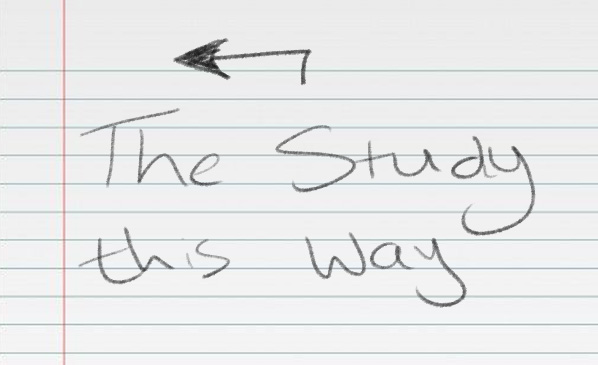 The Study
this Way